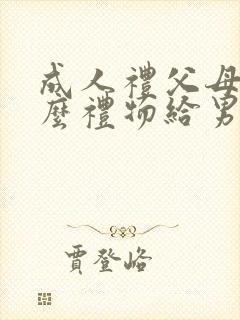 成人禮父母
麼禮物給男
賈登峪